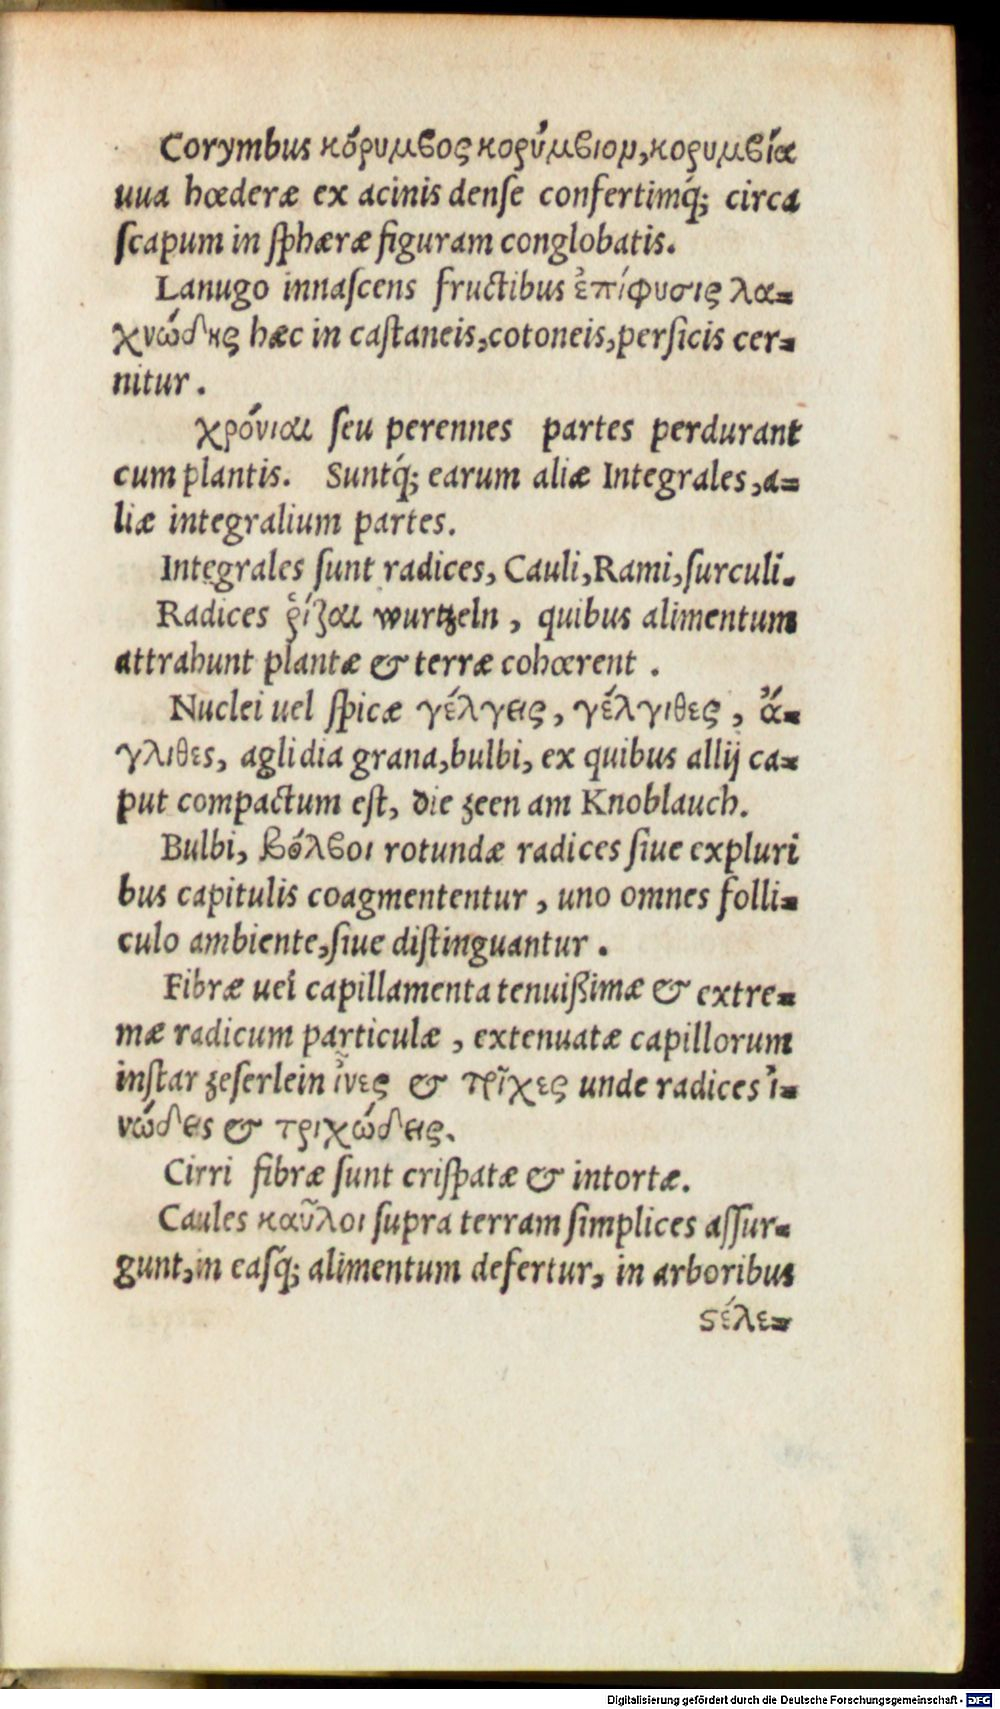 Corymbus κόρυμβος κορύμβιον, κορυμβία
uua hœderæ ex acinis dense confertimq́; circa
ſcapum in ſphæræ figuram conglobatis.
Lanugo innaſcens fructibus ἐπίφυσις λα=
χνώδης hæc in caſtaneis, cotoneis, perſicis cer=
nitur.
χρόνιαι ſeu perennes partes perdurant
cum plantis. Suntq́; earum aliæ Integrales, a=
liæ integralium partes.
Integrales ſunt radices, Cauli, Rami, ſurculi.
Radices ῥίζαι wurtzeln, quibus alimentum
attrahunt plantæ & terræ cohœrent.
Nuclei uel ſpicæ γέλγεις, γέλγιθες, ἄ=
γλιθες, aglidia grana, bulbi, ex quibus allij ca=
put compactum eſt, die zeen am Knoblauch.
Bulbi, βόλβοι rotundæ radices ſiue expluri
bus capitulis coagmententur, uno omnes folli=
culo ambiente, ſiue diſtinguantur.
Fibræ uel capillamenta tenuißimæ & extre=
mæ radicum particulæ, extenuatæ capillorum
inſtar zeſerlein ἶνες & τρῖχες unde radices ἰ=
νώδεις & τριχώδεις.
Cirri fibræ ſunt criſpatæ & intortæ.
Caules καῦλοι ſupra terram ſimplices aſſur=
gunt, in eaſq́; alimentum defertur, in arboribus
ϛέλε=
Digitalisierung gefördert durch die Deutsche Forschungsgemeinschaft - DFG